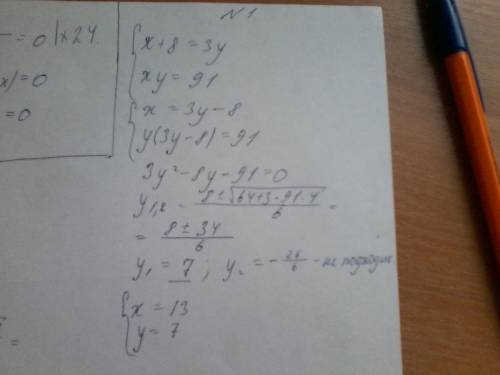 N 1.
= 0 | × 24
x) = 0
= 0
{ x + 8 = 3y
xy = 91
{ x = 3y - 8
y(3y - 8) = 91
3y² - 8y - 91 = 0
y₁,₂ = (8 ± √(64 + 3 · 91 · 4)) / 6 =
= (8 ± 34) / 6
y₁ = 7 ; y₂ = - 26/6 - не подходит
{ x = 13
y = 7
=